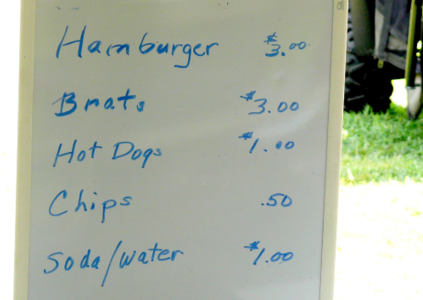 Hamburger $3.00
Brats $3.00
Hot Dogs $1.00
Chips .50
Soda/water $1.00